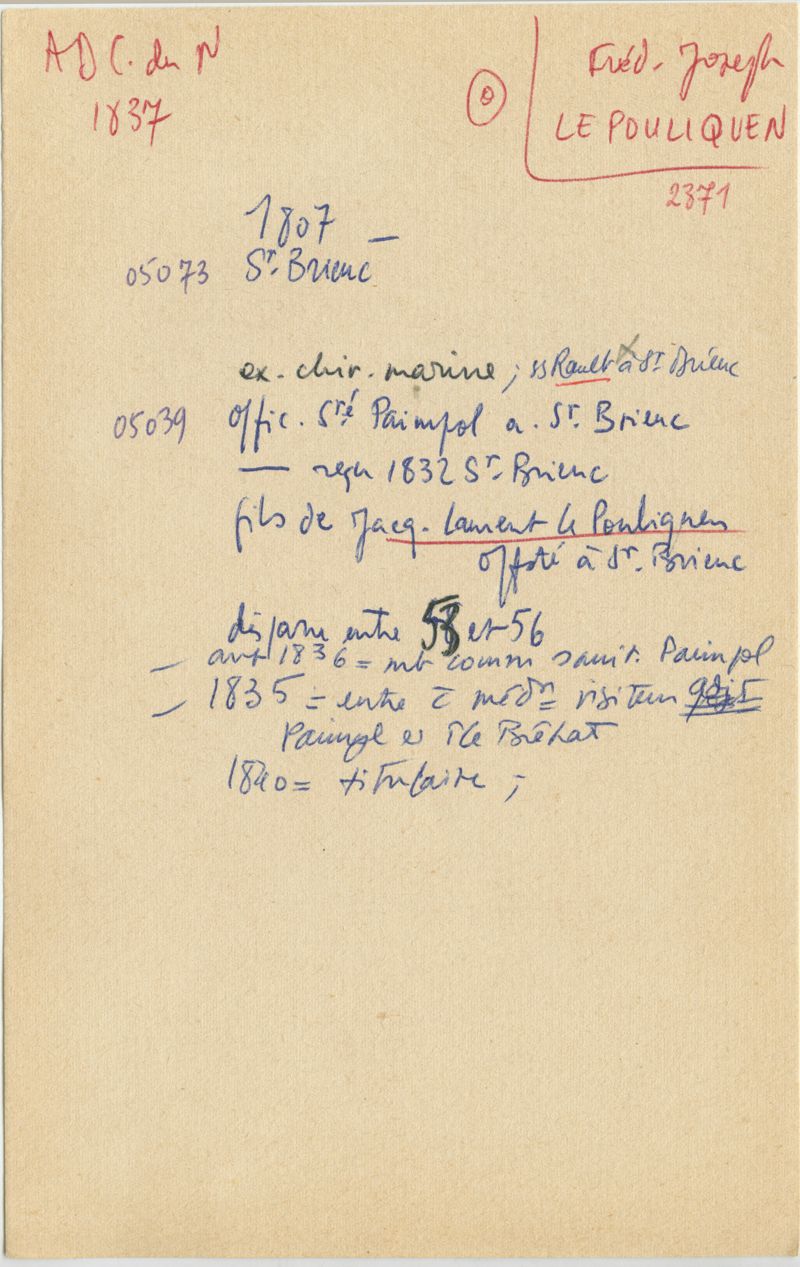 A D C. du N
1837
Fréd. Joseph
LE POULIQUEN
2371
1807 –
05073 St. Brieuc
ex. chir. marine ; ss Rault à St Brieuc
05039 offic. Sté Paimpol a. St. Brieuc
— reçu 1832 St. Brieuc
fils de Jacq. Laurent Le Pouliquen
offsté à St. Brieuc
dispare entre 53 et 56
– avt 1836 = mb comm sanit. Paimpol
– 1835 = entre c̄ médn = visiteur
Paimpol et île Bréhat
1840 = titulaire ;